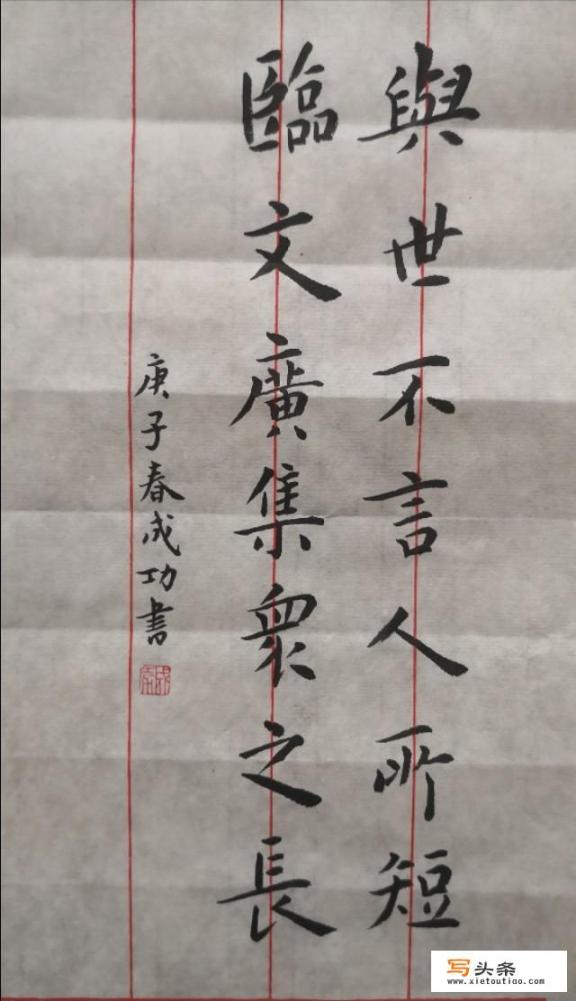 與世不言人所短
臨文廣集眾之長
庚子春成功書
写头条
www.xietoutiao.com